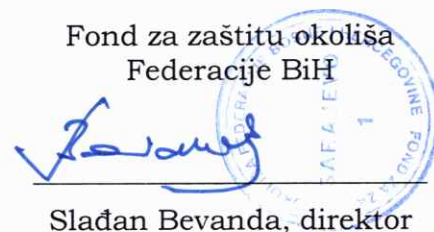 Fond za zaštitu okoliša
Federacije BiH
SARAJEVO
1
Slađan Bevanda, direktor